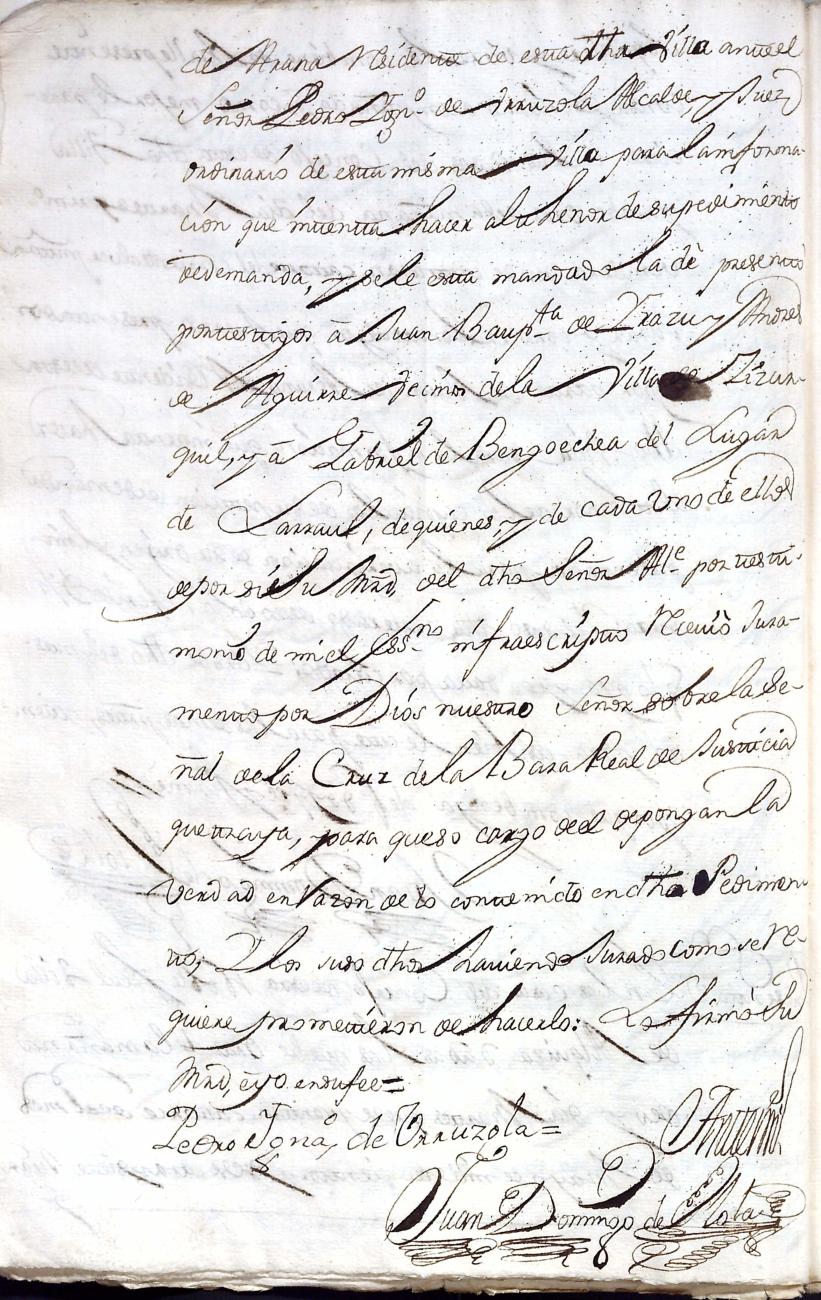 de Arana Residente de esta dha Villa ante el
Señor Pedro Ign.º de Urruzola Alcalde, y Juez
ordinario de esta misma Villa para la informa-
ción que intenta hacer al thenor de su pedimento
de demanda, y se le esta mandado la dê presentó
por testigos â Juan Bap.ta de Yrazu y Andres
de Aguirre Vecinos de la Villa de Zizur-
quil, y â Gabriel de Bengoechea del Lugar
de Larraul, de quienes, y de cada Vno de ellos
de por si el Su Mrd, del dho Señor Al.e por testi-
monio de mi el Ess.no infraescripto Reciuió Jura-
mento por Diós nuestro Señor sobre la Se-
ñal de la Cruz de la Bara Real de Justicia
que traya, para que so cargo de el depongan la
Verdad en Razon de lo contenido en dho Pedimen
to, Y los suso dhos haviendo Jurado como se Re-
quiere prometieron de hacerlo: Lo firmó Su
Mrd, e yo en su fee =
Pedro Ignaº, de Urruzola =
Ante mi
Juan Domingo de